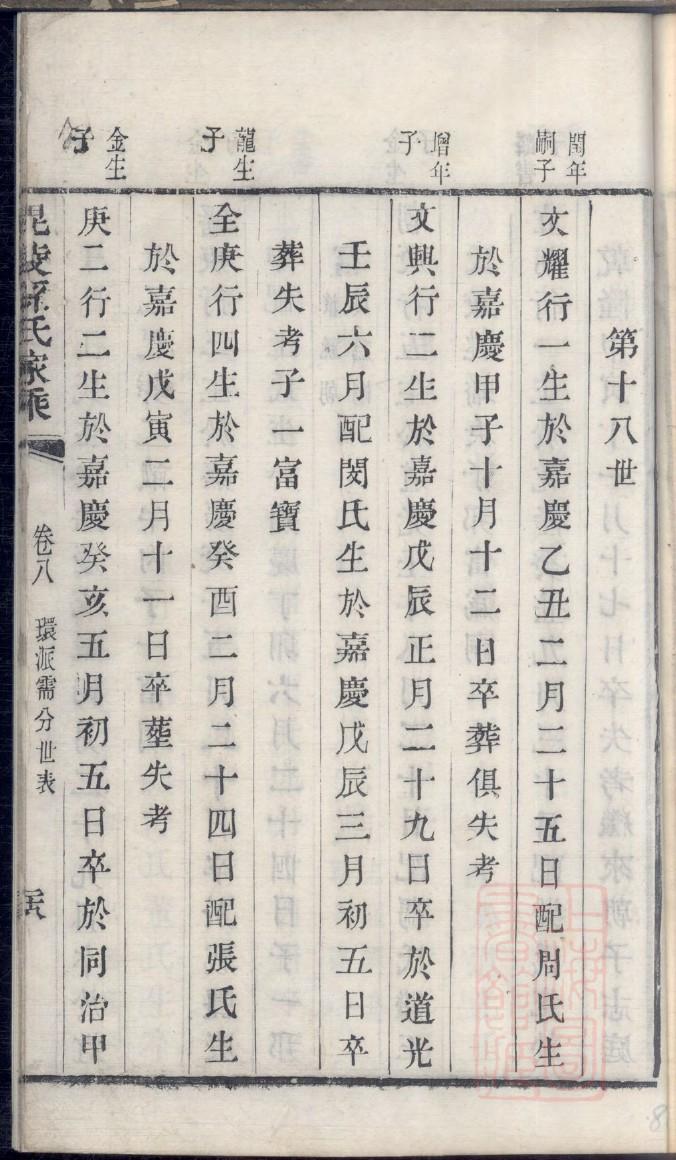 第十八世
閏年
嗣子
文耀行一生於嘉慶乙丑二月三十五日配周氏生
於嘉慶甲子十月十二日卒葬俱失考
增年
子
文興行二生於嘉慶戊辰正月二十九日卒於道光
壬辰六月配閔氏生於嘉慶戊辰三月初五日卒
葬失考子一富寶
龍生
子
全庚行四生於嘉慶癸酉二月二十四日配張氏生
於嘉慶戊寅二月十一日卒塟失考
金生
子
庚二行二生於嘉慶癸亥五月初五日卒於同治甲
毘陵 氏家乘
卷八 環派需分世表